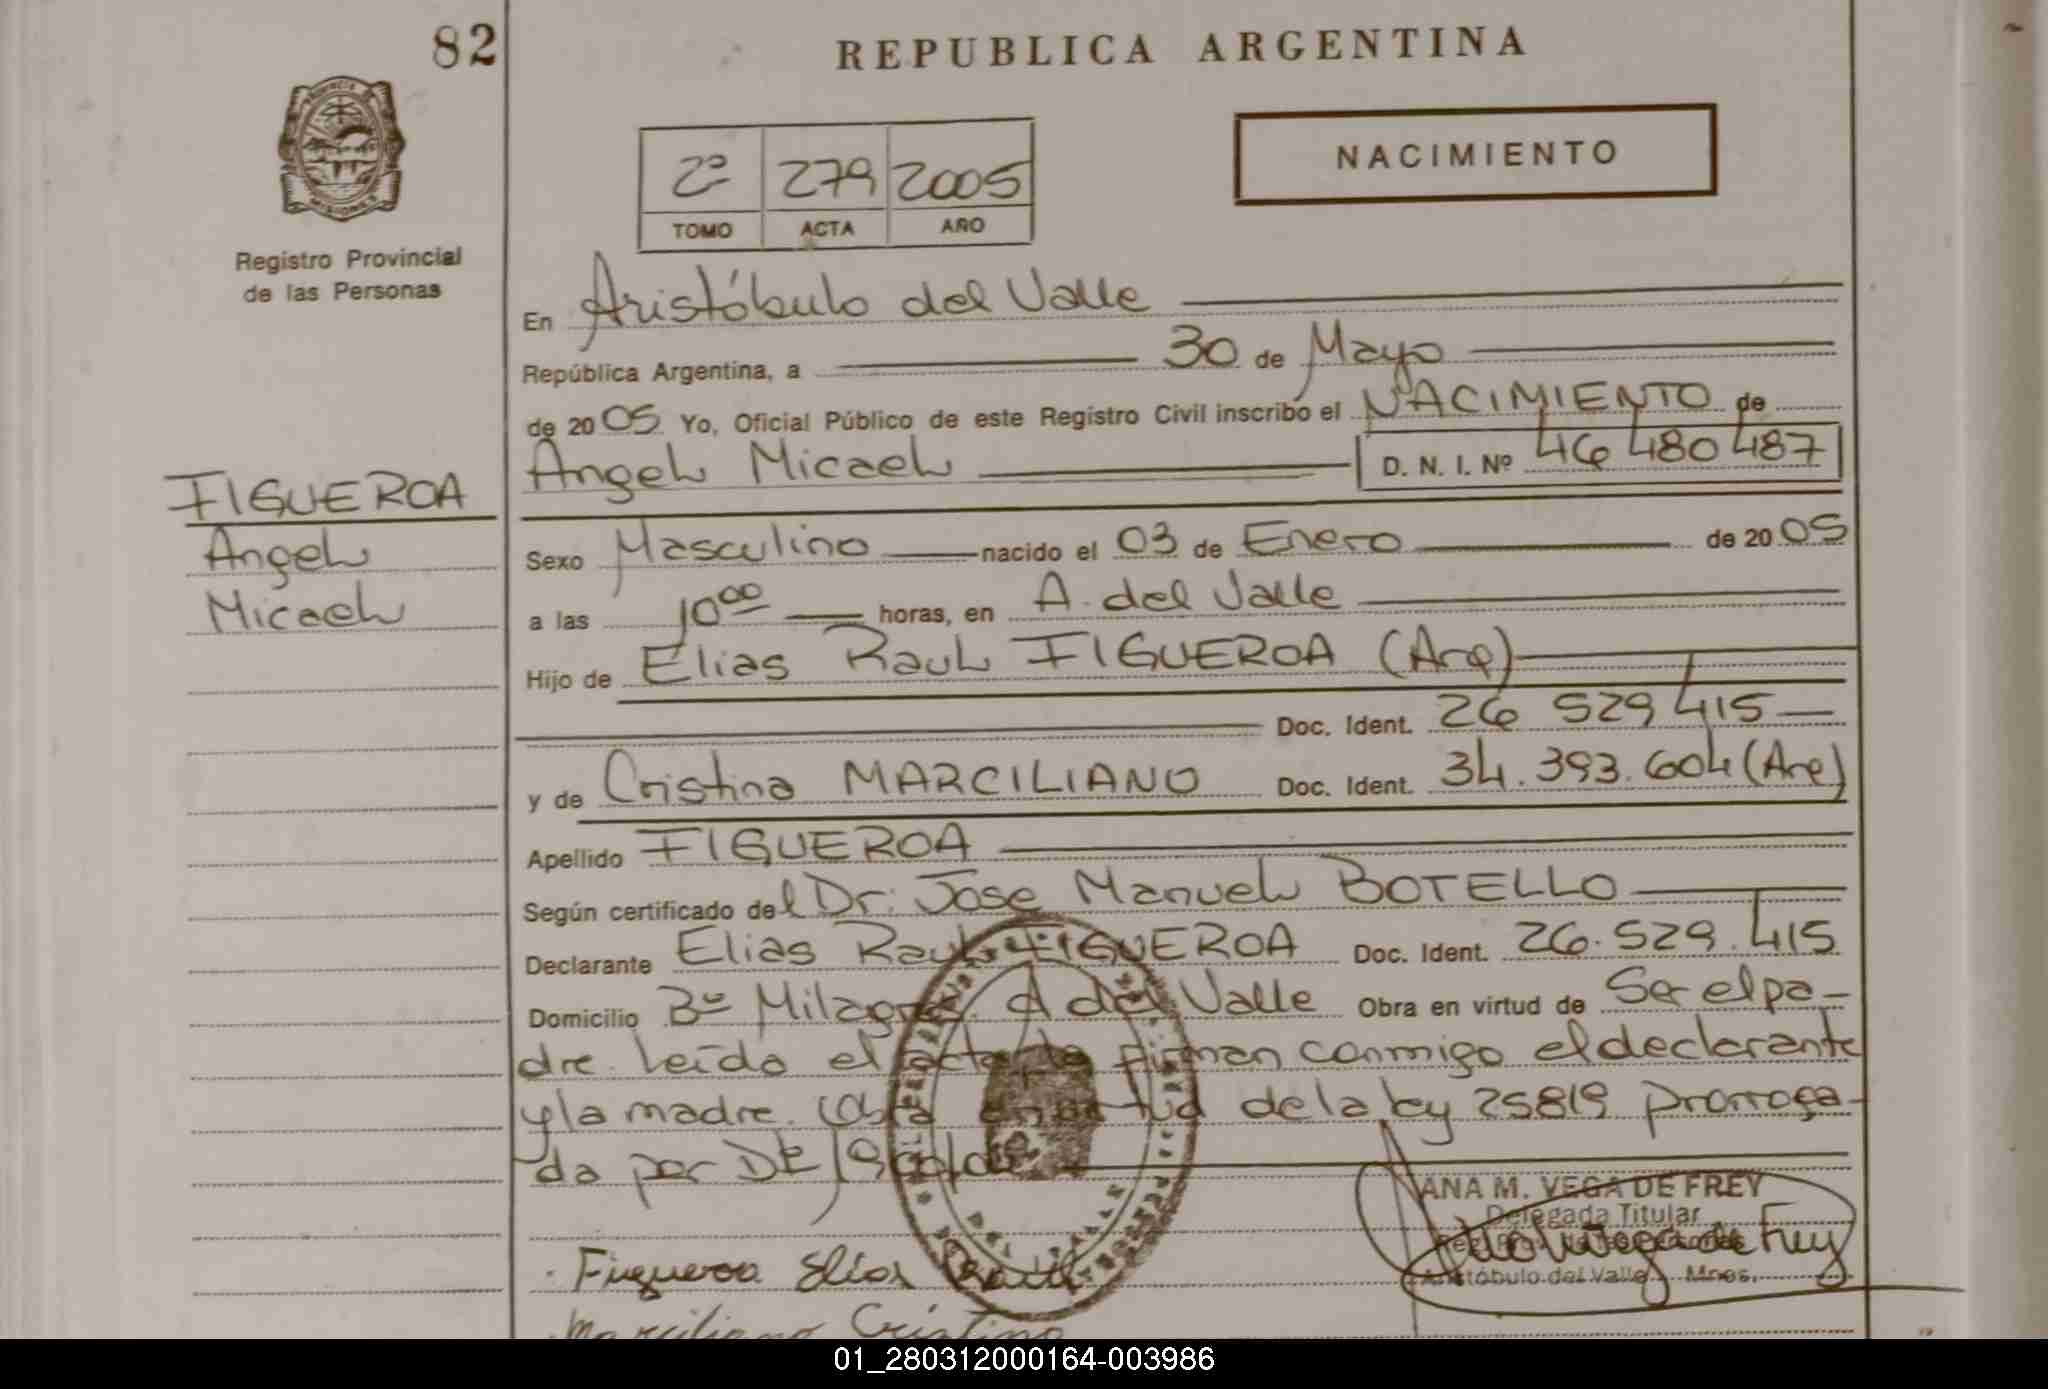 82
REPUBLICA ARGENTINA
NACIMIENTO
2º 279 2005
TOMO ACTA AÑO
Registro Provincial
de las Personas
En Aristóbulo del Valle
República Argentina, a 30 de Mayo
de 2005 Yo, Oficial Público de este Registro Civil inscribo el NACIMIENTO de
Angel Micael D. N. I. Nº 46 480 487
FIGUEROA
Angel
Micael
Sexo Masculino nacido el 03 de Enero de 2005
a las 10⁰⁰ horas, en A. del Valle
Hijo de Elias Raul FIGUEROA (Arg)
Doc. Ident. 26 529 415
y de Cristina MARCILIANO Doc. Ident. 34.393.604 (Arg)
Apellido FIGUEROA
Según certificado del Dr. Jose Manuel BOTELLO
Declarante Elias Raul FIGUEROA Doc. Ident. 26.529.415
Domicilio Bº Milagros A del Valle Obra en virtud de Ser el pa-
dre. Leída el acta la firman conmigo el declarante
y la madre. Obra en virtud de la ley 25819 prorroga-
da por
ANA M. VEGA DE FREY
Delegada Titular
Aristóbulo del Valle Mnes.
Figueroa Elias Raul
Marciliano Cristina
01_280312000164-003986